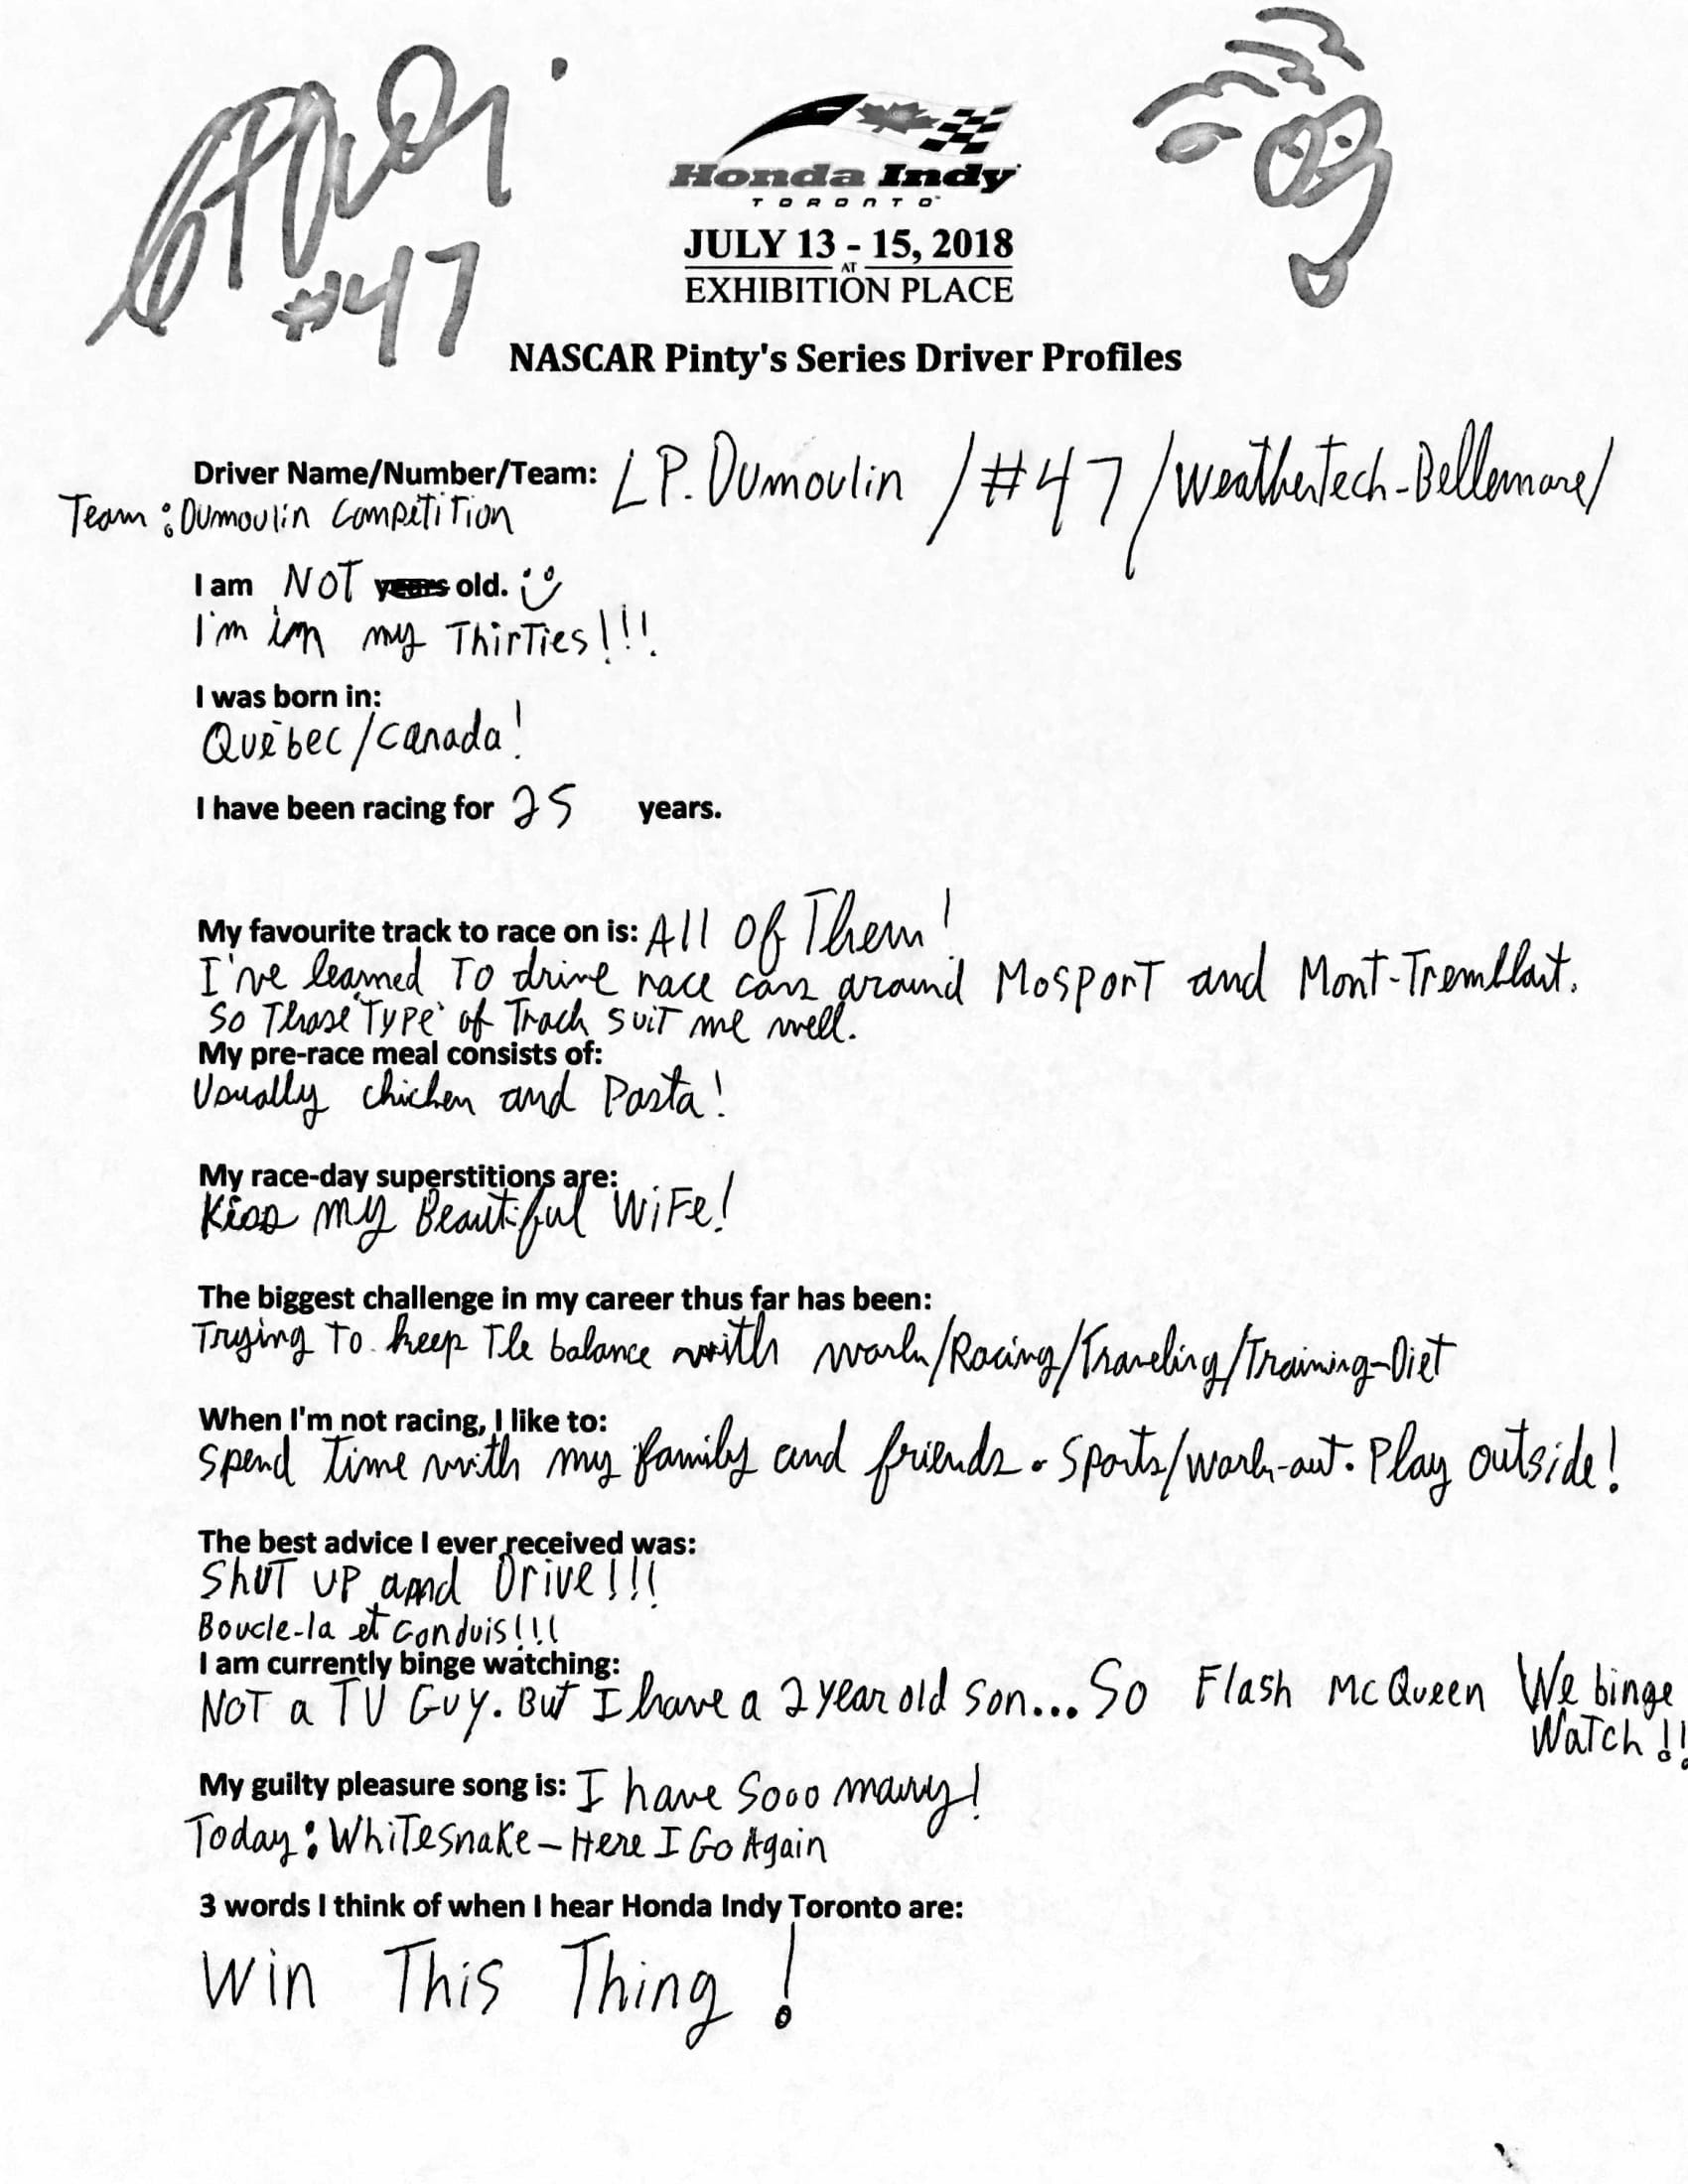 #47
Honda Indy
TORONTO
JULY 13 - 15, 2018
AT
EXHIBITION PLACE
NASCAR Pinty's Series Driver Profiles
Driver Name/Number/Team: LP. Dumoulin / #47 / WeatherTech-Bellemare/
Team: Dumoulin Compétition
I am NOT years old.
I'm in my Thirties!!!
I was born in:
Québec/Canada!
I have been racing for 25 years.
My favourite track to race on is: All Of Them!
I've learned To drive race cars around Mosport and Mont-Tremblant.
So Those "Type" of Track suit me well.
My pre-race meal consists of:
Usually chicken and Pasta!
My race-day superstitions are:
Kiss my Beautiful WiFe!
The biggest challenge in my career thus far has been:
Trying To keep The balance with work/Racing/Traveling/Training-Diet
When I'm not racing, I like to:
Spend Time with my family and friends. Sports/work-out. Play outside!
The best advice I ever received was:
Shut up and Drive!!!
Boucle-la et Conduis!!!
I am currently binge watching:
Not a TV Guy. But I have a 2 year old son... So Flash McQueen We binge
Watch!!
My guilty pleasure song is: I have Sooo many!
Today: Whitesnake - Here I Go Again
3 words I think of when I hear Honda Indy Toronto are:
Win This Thing!